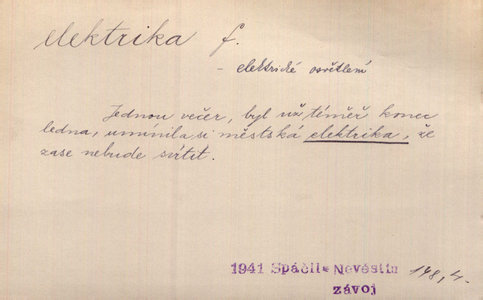 elektrika f.
- elektrické osvětlení
Jednou večer, byl už téměř konec
ledna, umínila si městská elektrika, že
zase nebude svítit.
1941 Spáčil- Nevěstin 148,4.
závoj